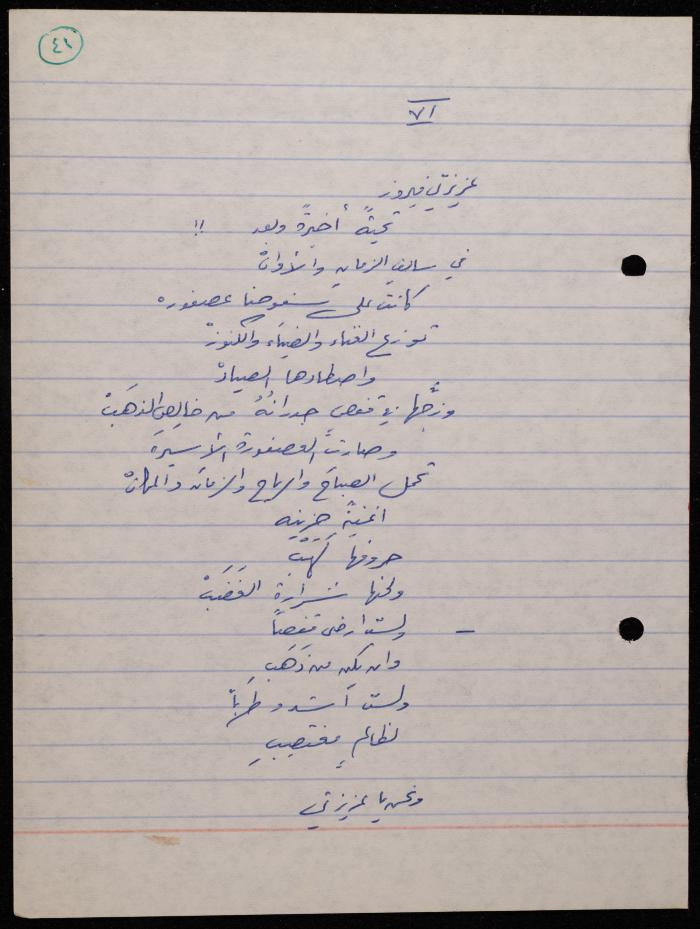 ٤٦
٧١
عزيزتي فيروز
تحيةً أخيرةً وبعد !!
في سالف الزمان والأوانْ
كانت على سفوحنا عصفوره
توزع الغناء والضياء والكنوزْ
واصطادها الصيادْ
وزجَّها في قفصٍ جدرانُهُ من خالص الذهَبْ
وصارتْ العصفورة الأسيرة
تحمل الصباحَ والرياح والزمانَ والمكانْ
اغنيةً حزينه
حروفها لَهَبْ
ولحنها شرارة الغَضَبْ
– ولست ارضى قفصاً
وان يكن من ذَهَبِ
ولست أشدو طرباً
لظالمٍ مغتصبِ
ونحن يا عزيزتي